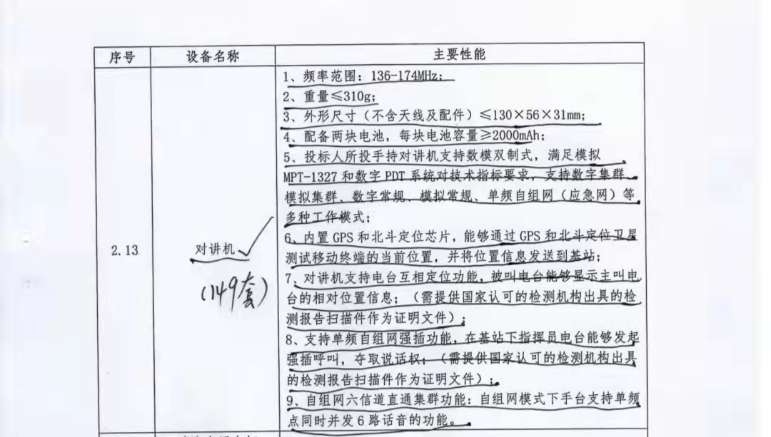 序号 设备名称 主要性能
1、频率范围：136-174MHz；
2、重量≤310g；
3、外形尺寸（不含天线及配件）≤130×56×31mm；
4、配备两块电池，每块电池容量≥2000mAh；
5、投标人所投手持对讲机支持数模双制式，满足模拟
MPT-1327 和数字 PDT 系统对技术指标要求，支持数字集群、
模拟集群、数字常规、模拟常规、单频自组网（应急网）等
多种工作模式；
2.13 对讲机
(149套)
6、内置 GPS 和北斗定位芯片，能够通过 GPS 和北斗定位卫星
测试移动终端的当前位置，并将位置信息发送到基站；
7、对讲机支持电台互相定位功能，被叫电台能够显示主叫电
台的相对位置信息；（需提供国家认可的检测机构出具的检
测报告扫描件作为证明文件）；
8、支持单频自组网强插功能，在基站下指挥员电台能够发起
强插呼叫，夺取说话权；（需提供国家认可的检测机构出具
的检测报告扫描件作为证明文件）；
9、自组网六信道直通集群功能：自组网模式下手台支持单频
点同时并发 6 路话音的功能。